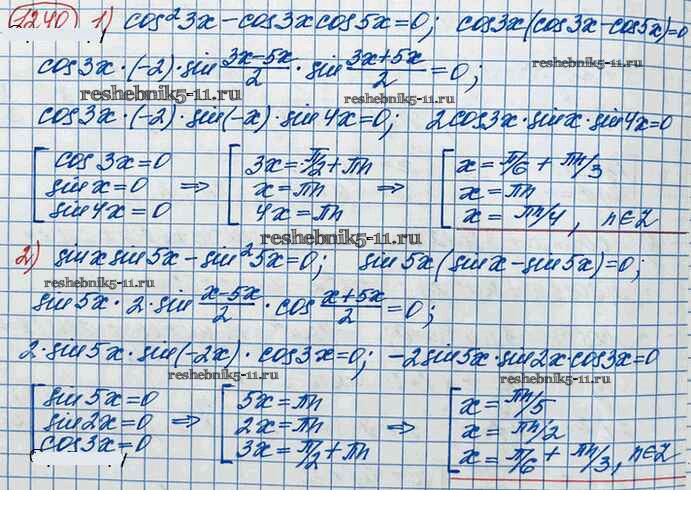 1240 1) cos²3x - cos3x cos5x = 0; cos3x(cos3x - cos5x) = 0
cos3x · (-2) · sin (3x-5x)/2 · sin (3x+5x)/2 = 0;
reshebnik5-11.ru
reshebnik5-11.ru reshebnik5-11.ru
cos3x · (-2) · sin(-x) · sin4x = 0; 2cos3x · sinx · sin4x = 0
reshebnik5-11.ru
[ cos3x = 0 [ 3x = π/2 + πn [ x = π/6 + πn/3
sinx = 0 ⇒ x = πn ⇒ x = πn
sin4x = 0 4x = πn x = πn/4, n∈Z
reshebnik5-11.ru
2) sinx sin5x - sin²5x = 0; sin5x(sinx - sin5x) = 0;
reshebnik5-11.ru
sin5x · 2 · sin (x-5x)/2 · cos (x+5x)/2 = 0;
2 · sin5x · sin(-2x) · cos3x = 0; -2sin5x · sin2x · cos3x = 0
reshebnik5-11.ru reshebnik5-11.ru
[ sin5x = 0 [ 5x = πn [ x = πn/5
sin2x = 0 ⇒ 2x = πn ⇒ x = πn/2
cos3x = 0 3x = π/2 + πn x = π/6 + πn/3, n∈Z